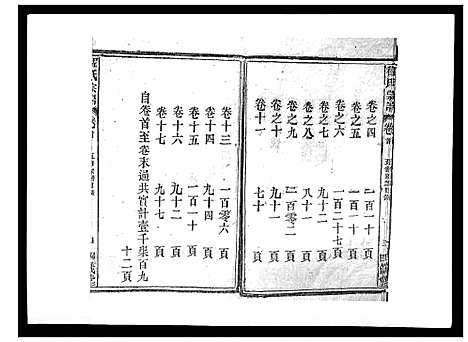 卷之四 一百一十 頁
卷之五 一百一十 頁
卷之六 一百二十七 頁
卷之七 九十二 頁
卷之八 八十 頁
卷之九 一百零二 頁
卷之十 九十一 頁
卷十一 七十 頁
卷十三 一百零六 頁
卷十四 九十四 頁
卷十五 一百一十 頁
卷十四 九十二 頁
卷十七 九十七 頁
自卷首至卷末過共實計壹千柒百九
十二頁
氏宗譜
卷首